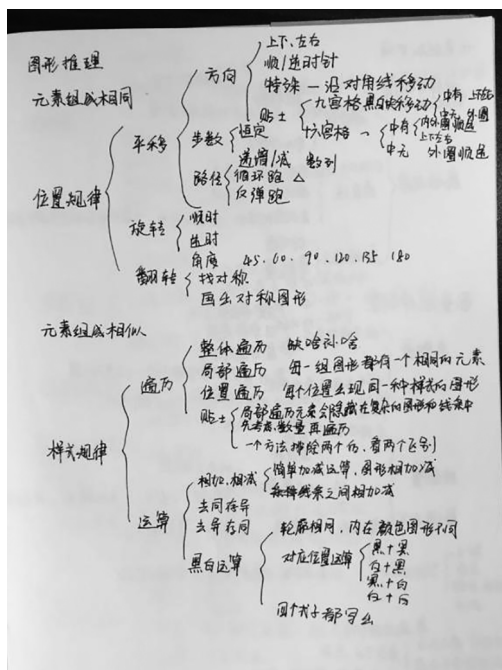 图形推理
元素组成相同
位置规律
平移
方向
上下、左右
顺/逆时针
特殊—沿对角线移动
贴士
九宫格黑块移动
中有 上下左右
中无 外圈
十六宫格
中有
内外圈顺逆
上下左右
中无 外圈顺逆
步数
恒定
递增/减 数列
路径
循环跑 △
反弹跑
旋转
顺时
逆时
角度 45.60.90.120.135.180
翻转
找对称
画出对称图形
元素组成相似
样式规律
遍历
整体遍历 缺啥补啥
局部遍历 每一组图形都有一个相同的元素
位置遍历 每个位置出现同一种样式的图形
贴士
局部遍历元素会隐藏在复杂的图形和线条中
先考虑数量再遍历
一个方法排除两个后,看两个区别
运算
相加、相减
简单加减运算,图形相加减
线条之间相加减
去同存异
去异存同
黑白运算
轮廓相同,内在颜色图形不同
对应位置运算
黑+黑
白+黑
黑+白
白+白
四个式子都写出